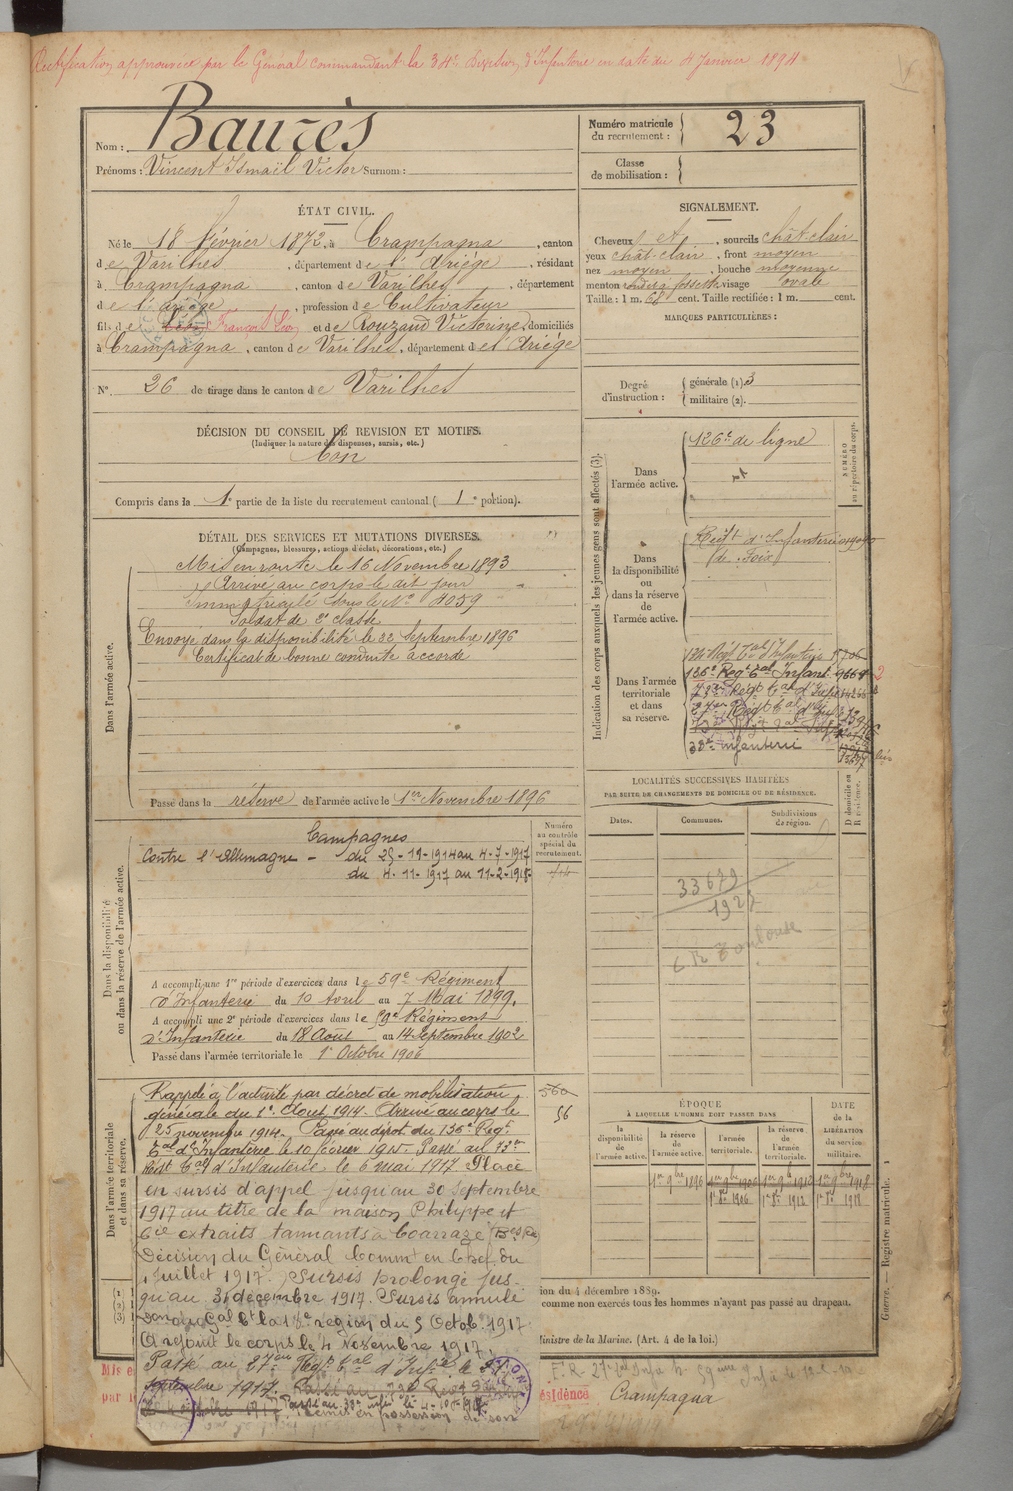 Rectification approuvée par le Général commandant la 34e Division d'Infanterie en date du 4 Janvier 1894
Nom : Baurès
Prénoms : Vincent Ismaël Victor Surnom :
Numéro matricule du recrutement : 23
Classe de mobilisation :
ÉTAT CIVIL.
Né le 18 février 1872, à Crampagna, canton
de Varilhes, département de l'Ariège, résidant
à Crampagna, canton de Varilhes, département
de l'Ariège, profession de Cultivateur
fils de Léon François Léon et de Rouzaud Victorine, domiciliés
à Crampagna, canton de Varilhes, département de l'Ariège
N° 26 de tirage dans le canton de Varilhes
SIGNALEMENT.
Cheveux et, sourcils chât. clair
yeux chât. clair, front moyen
nez moyen, bouche moyenne
menton rond à fossette visage ovale
Taille : 1 m. 68 cent. Taille rectifiée : 1 m. cent.
MARQUES PARTICULIÈRES :
Degré d'instruction : générale (1). 3
militaire (2).
DÉCISION DU CONSEIL DE REVISION ET MOTIFS.
(Indiquer la nature des dispenses, sursis, etc.)
bon
Compris dans la 1e partie de la liste du recrutement cantonal (1e portion).
DÉTAIL DES SERVICES ET MUTATIONS DIVERSES.
(Campagnes, blessures, actions d'éclat, décorations, etc.)
Dans l'armée active.
Mis en route le 16 Novembre 1893
Arrivé au corps le dit jour
Immatriculé sous le N° 4059
Soldat de 2e classe
Envoyé dans la disponibilité le 22 Septembre 1896
Certificat de bonne conduite accordé
Passé dans la réserve de l'armée active le 1er Novembre 1896
Indication des corps auxquels les jeunes gens sont affectés (3).
NUMÉRO au répertoire du corps.
Dans l'armée active.
126e de ligne
Dans la disponibilité ou dans la réserve de l'armée active.
Régt d'Infanterie
de Foix
Dans l'armée territoriale et dans sa réserve.
136e Regt Tal Infant. 9664
33e Infanterie
LOCALITÉS SUCCESSIVES HABITÉES
PAR SUITE DE CHANGEMENTS DE DOMICILE OU DE RÉSIDENCE.
Dates.
Communes.
Subdivisions de région.
D domicile ou R résidence.
33679
1927
C R Toulouse
Dans la disponibilité ou dans la réserve de l'armée active.
Numéro au contrôle spécial du recrutement.
Campagnes
Contre l'Allemagne - du 25-11-1914 au 4-7-1917
du 4-11-1917 au 11-2-1918
A accompli une 1re période d'exercices dans le 59e Régiment
d'Infanterie du 10 Avril au 7 Mai 1899.
A accompli une 2e période d'exercices dans le 59e Régiment
d'Infanterie du 18 Août au 14 Septembre 1902
Passé dans l'armée territoriale le 1er Octobre 1906
Dans l'armée territoriale et dans sa réserve.
560
56
Rappelé à l'activité par décret de mobilisation
générale du 1er Août 1914. Arrivé au corps le
25 novembre 1914. Passé au dépôt du 136e Régt
Tal d'Infanterie le 10 février 1915. Passé au 73e
Régt Tal d'Infanterie le 6 mai 1917. Placé
en sursis d'appel jusqu'au 30 Septembre
1917 au titre de la maison Philippe et
Cie extraits tannants à Coarraze (Bses Pées)
Décision du Général Commt en Chef du
1 Juillet 1917. Sursis prolongé jus-
qu'au 31 décembre 1917. Sursis annulé
Gal Ct la 18e région du 5 Octob. 1917
A rejoint le corps le 4 Novembre 1917.
Passé au 27e Régt Tal d'Infie le
septembre 1917.
Passé au 33e infie le
Remis en possession de son
ÉPOQUE
À LAQUELLE L'HOMME DOIT PASSER DANS
la disponibilité de l'armée active.
la réserve de l'armée active.
l'armée territoriale.
la réserve de l'armée territoriale.
DATE de la LIBÉRATION du service militaire.
1er 9bre 1896
1er 9bre 1906
1er 9bre 1912
1er 9bre 1918
1er 8bre 1906
1er 8bre 1912
1er 8bre 1918
(1)
(2)
(3)
ion du 4 décembre 1889.
comme non exercés tous les hommes n'ayant pas passé au drapeau.
Ministre de la Marine. (Art. 4 de la loi.)
Guerre. — Registre matricule. 1
Mis e
par l
ésidence Crampagna